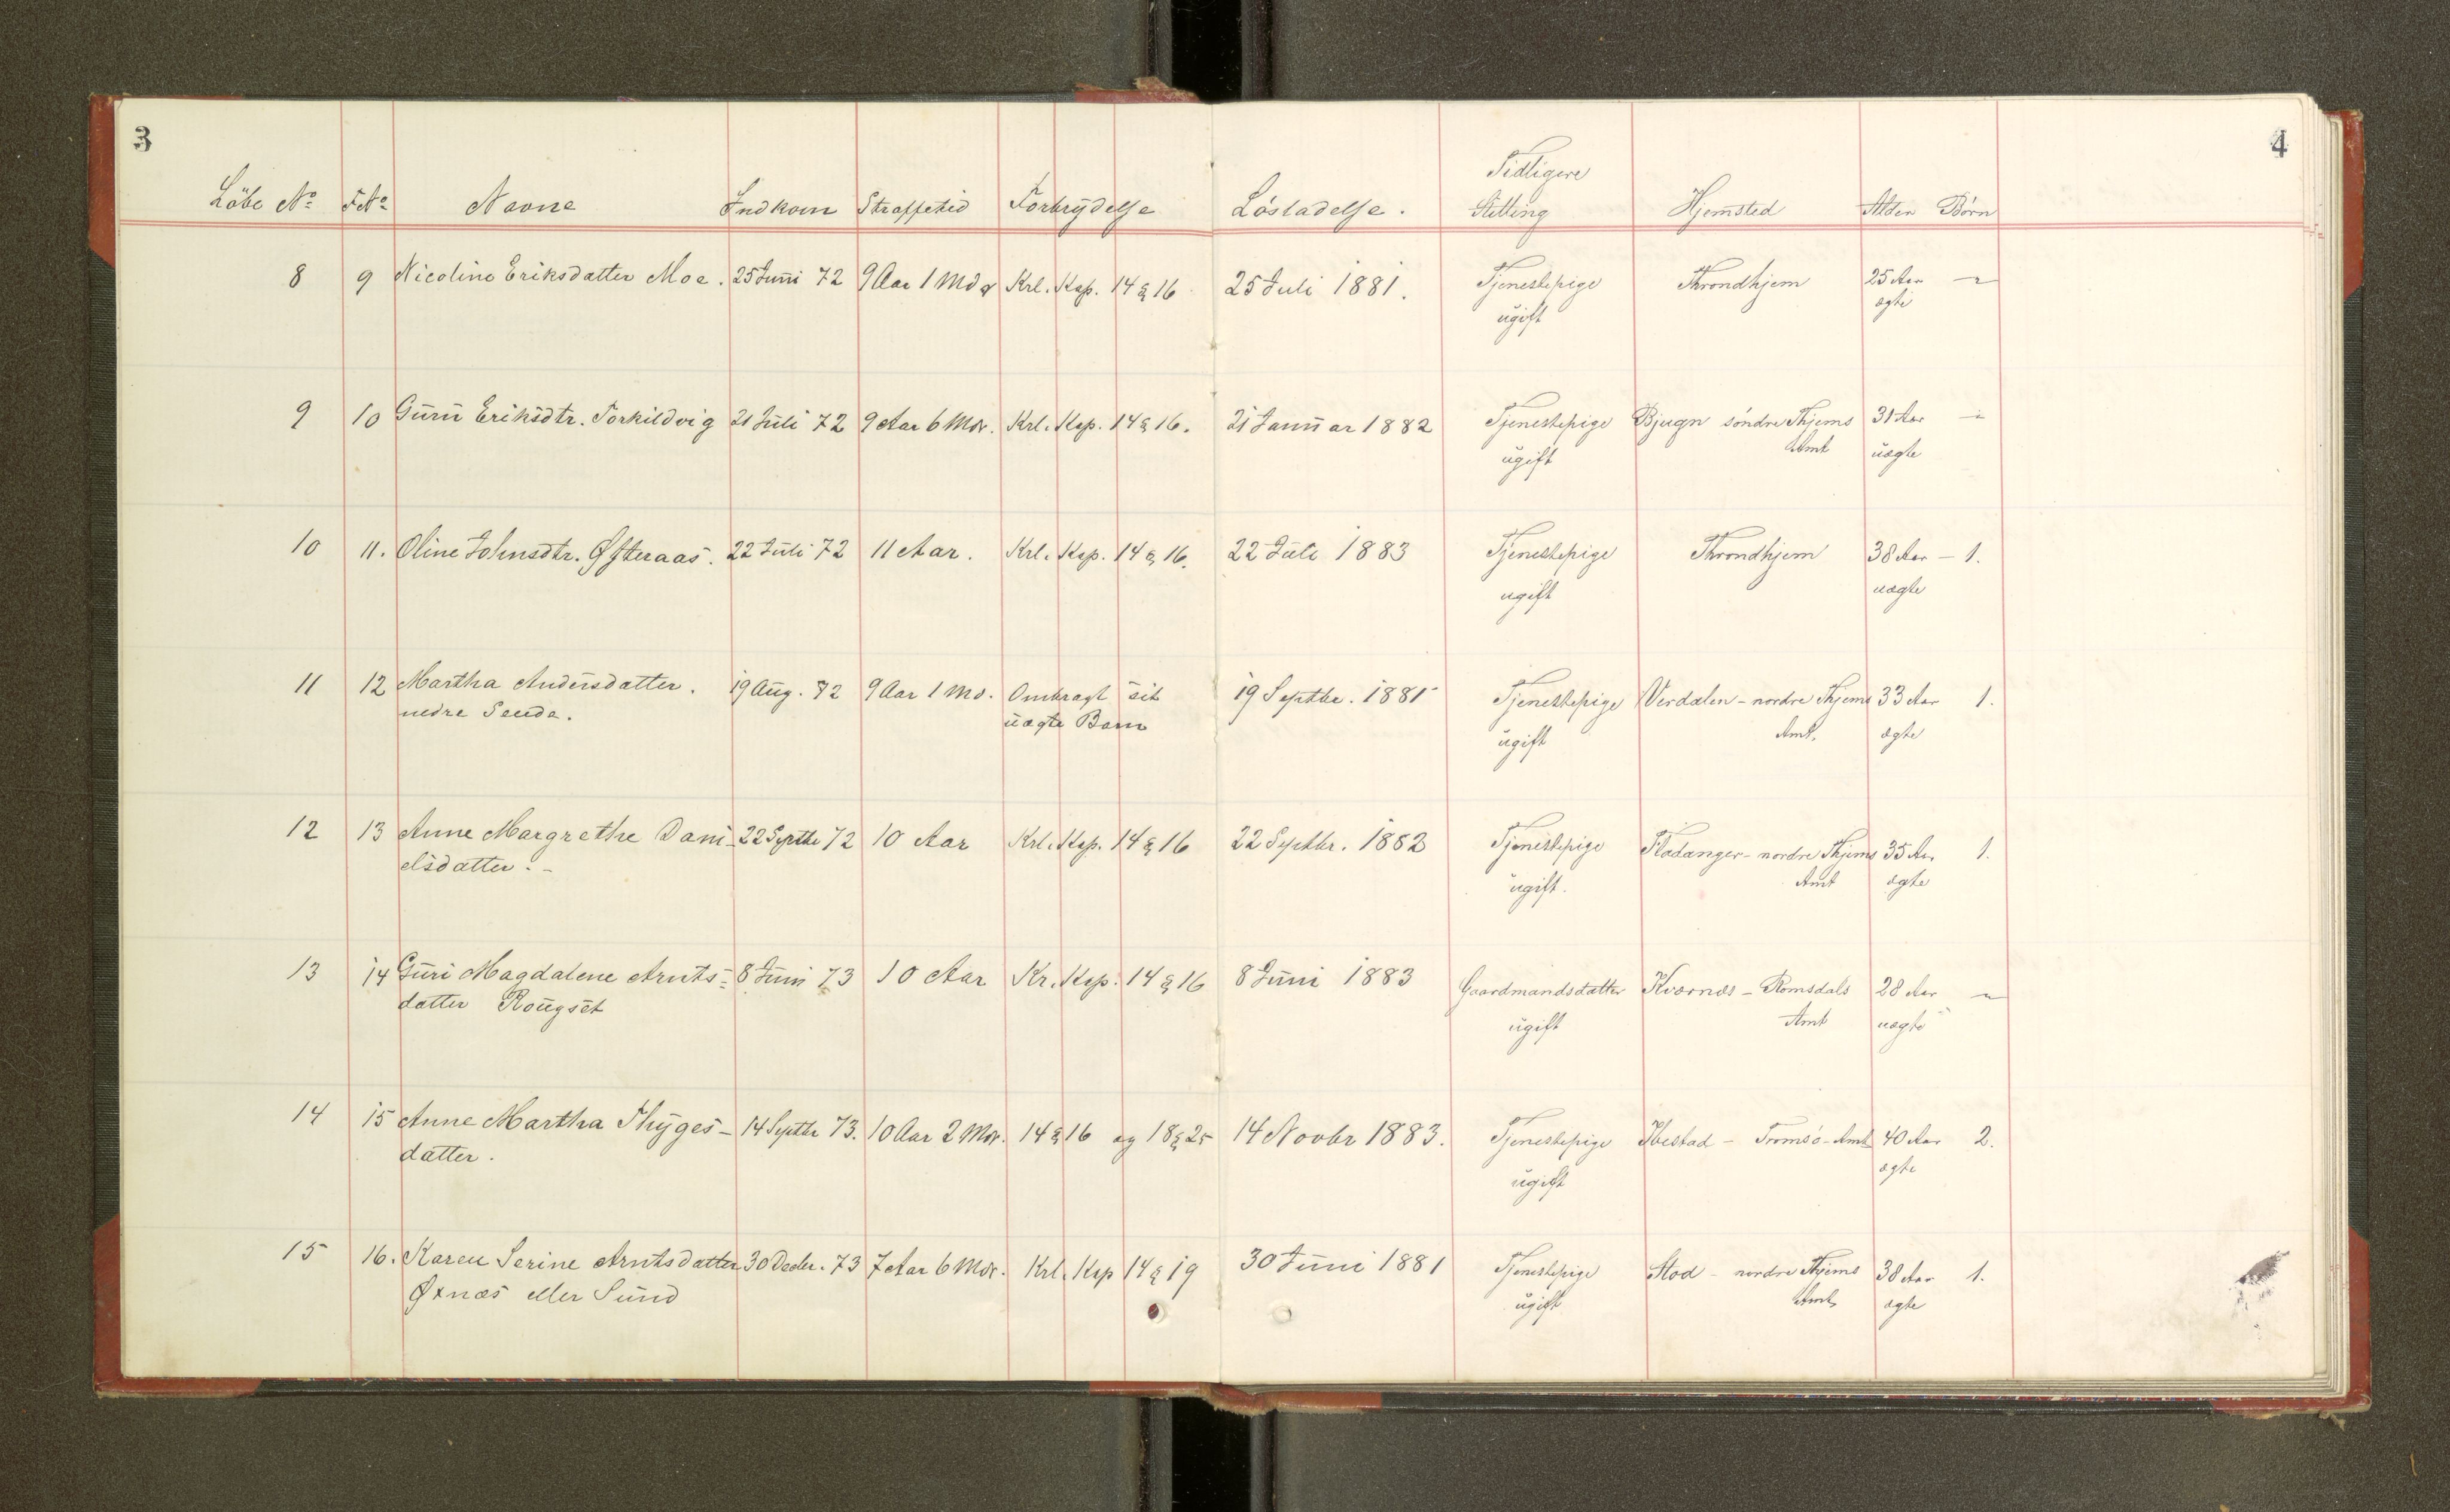 3
4
Tidligere
Löbe No FNo Navne Indkom Straffetid Forbrydelse Lösladelse. Stilling Hjemsted Alder Børn
8 9 Nicoline Eriksdatter Moe. 25 Juni 72 9 Aar 1 Md Krl. Kap. 14 § 16 25 Juli 1881. Tjenestepige Throndhjem 25 Aar -"-
ugift ægte
9 10 Guru Eriksdtr. Torkildvig 21 Juli 72 9 Aar 6 Mdr. Krl. Kap. 14 § 16. 21 Januar 1882 Tjenestepige Bjugn söndre Thjems 31 Aar -"-
ugift Amt uægte
10 11. Oline Johnsdtr. Øfsteraas. 22 Juli 72 11 Aar. Krl. Kap. 14 § 16. 22 Juli 1883 Tjenestepige Throndhjem 38 Aar - 1.
ugift uægte
11 12 Martha Andersdatter. 19 Aug. 72 9 Aar 1 Md. Ombragt sit 19 Septbr. 1881 Tjenestepige Verdalen - nordre Thjems 33 Aar 1.
nedre uægte Barn ugift Amt. ægte
12 13 Anne Margrethe Dani- 22 Septbr 72 10 Aar Krl. Kap. 14 § 16 22 Septbr. 1882 Tjenestepige Fladanger - nordre Thjems 35 Aar 1.
elsdatter. - ugift. Amt ægte
13 14 Guri Magdalene Arnts= 8 Juni 73 10 Aar Kr. Kap. 14 § 16 8 Juni 1883 Gaardmandsdatter Kværnæs - Romsdals 28 Aar -"-
datter Rougset ugift Amt uægte
14 15 Anne Martha Thyges- 14 Septbr 73. 10 Aar 2 Mdr. 14 § 16 og 18 § 25 14 Novbr 1883. Tjenestepige Ibestad - Tromsö - Amt 40 Aar 2.
datter. ugift ægte
15 16. Karen Serine Arntsdatter 30 Decbr. 73 7 Aar 6 Mdr. Krl. Kap 14 § 19 30 Juni 1881 Tjenestepige Stod - nordre Thjems 38 Aar 1.
Øxnæs eller Sund ugift Amt ægte